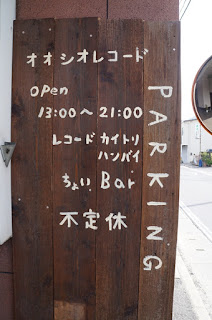 オオシオレコード
OPEN
13:00～21:00
レコード カイトリ
ハンバイ
ちょい Bar
不定休
PARKING